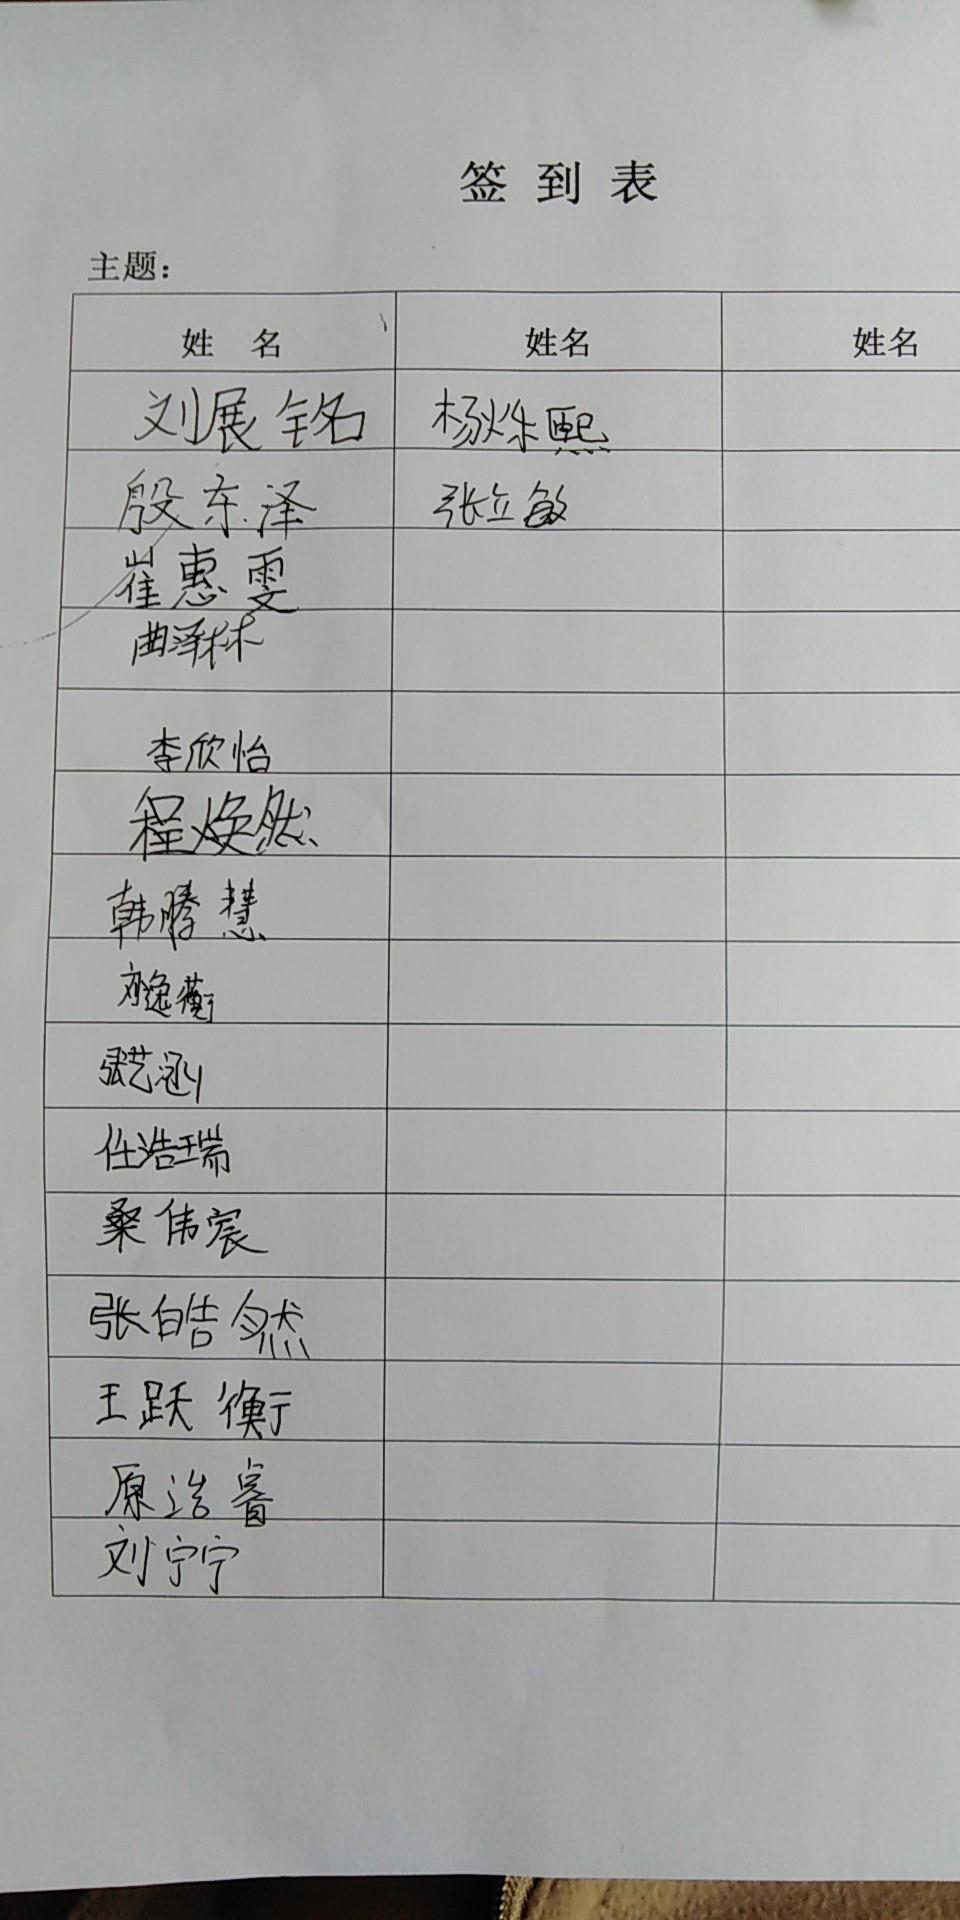 签到表
主题：
姓 名 姓名 姓名
刘展铭 杨烁熙
殷东泽 张立敏
崔惠雯
曲泽林
李欣怡
程焕然
韩腾慧
刘逸衡
张艺涵
任浩瑞
桑伟宸
张皓然
王跃衡
原浩睿
刘宁宁